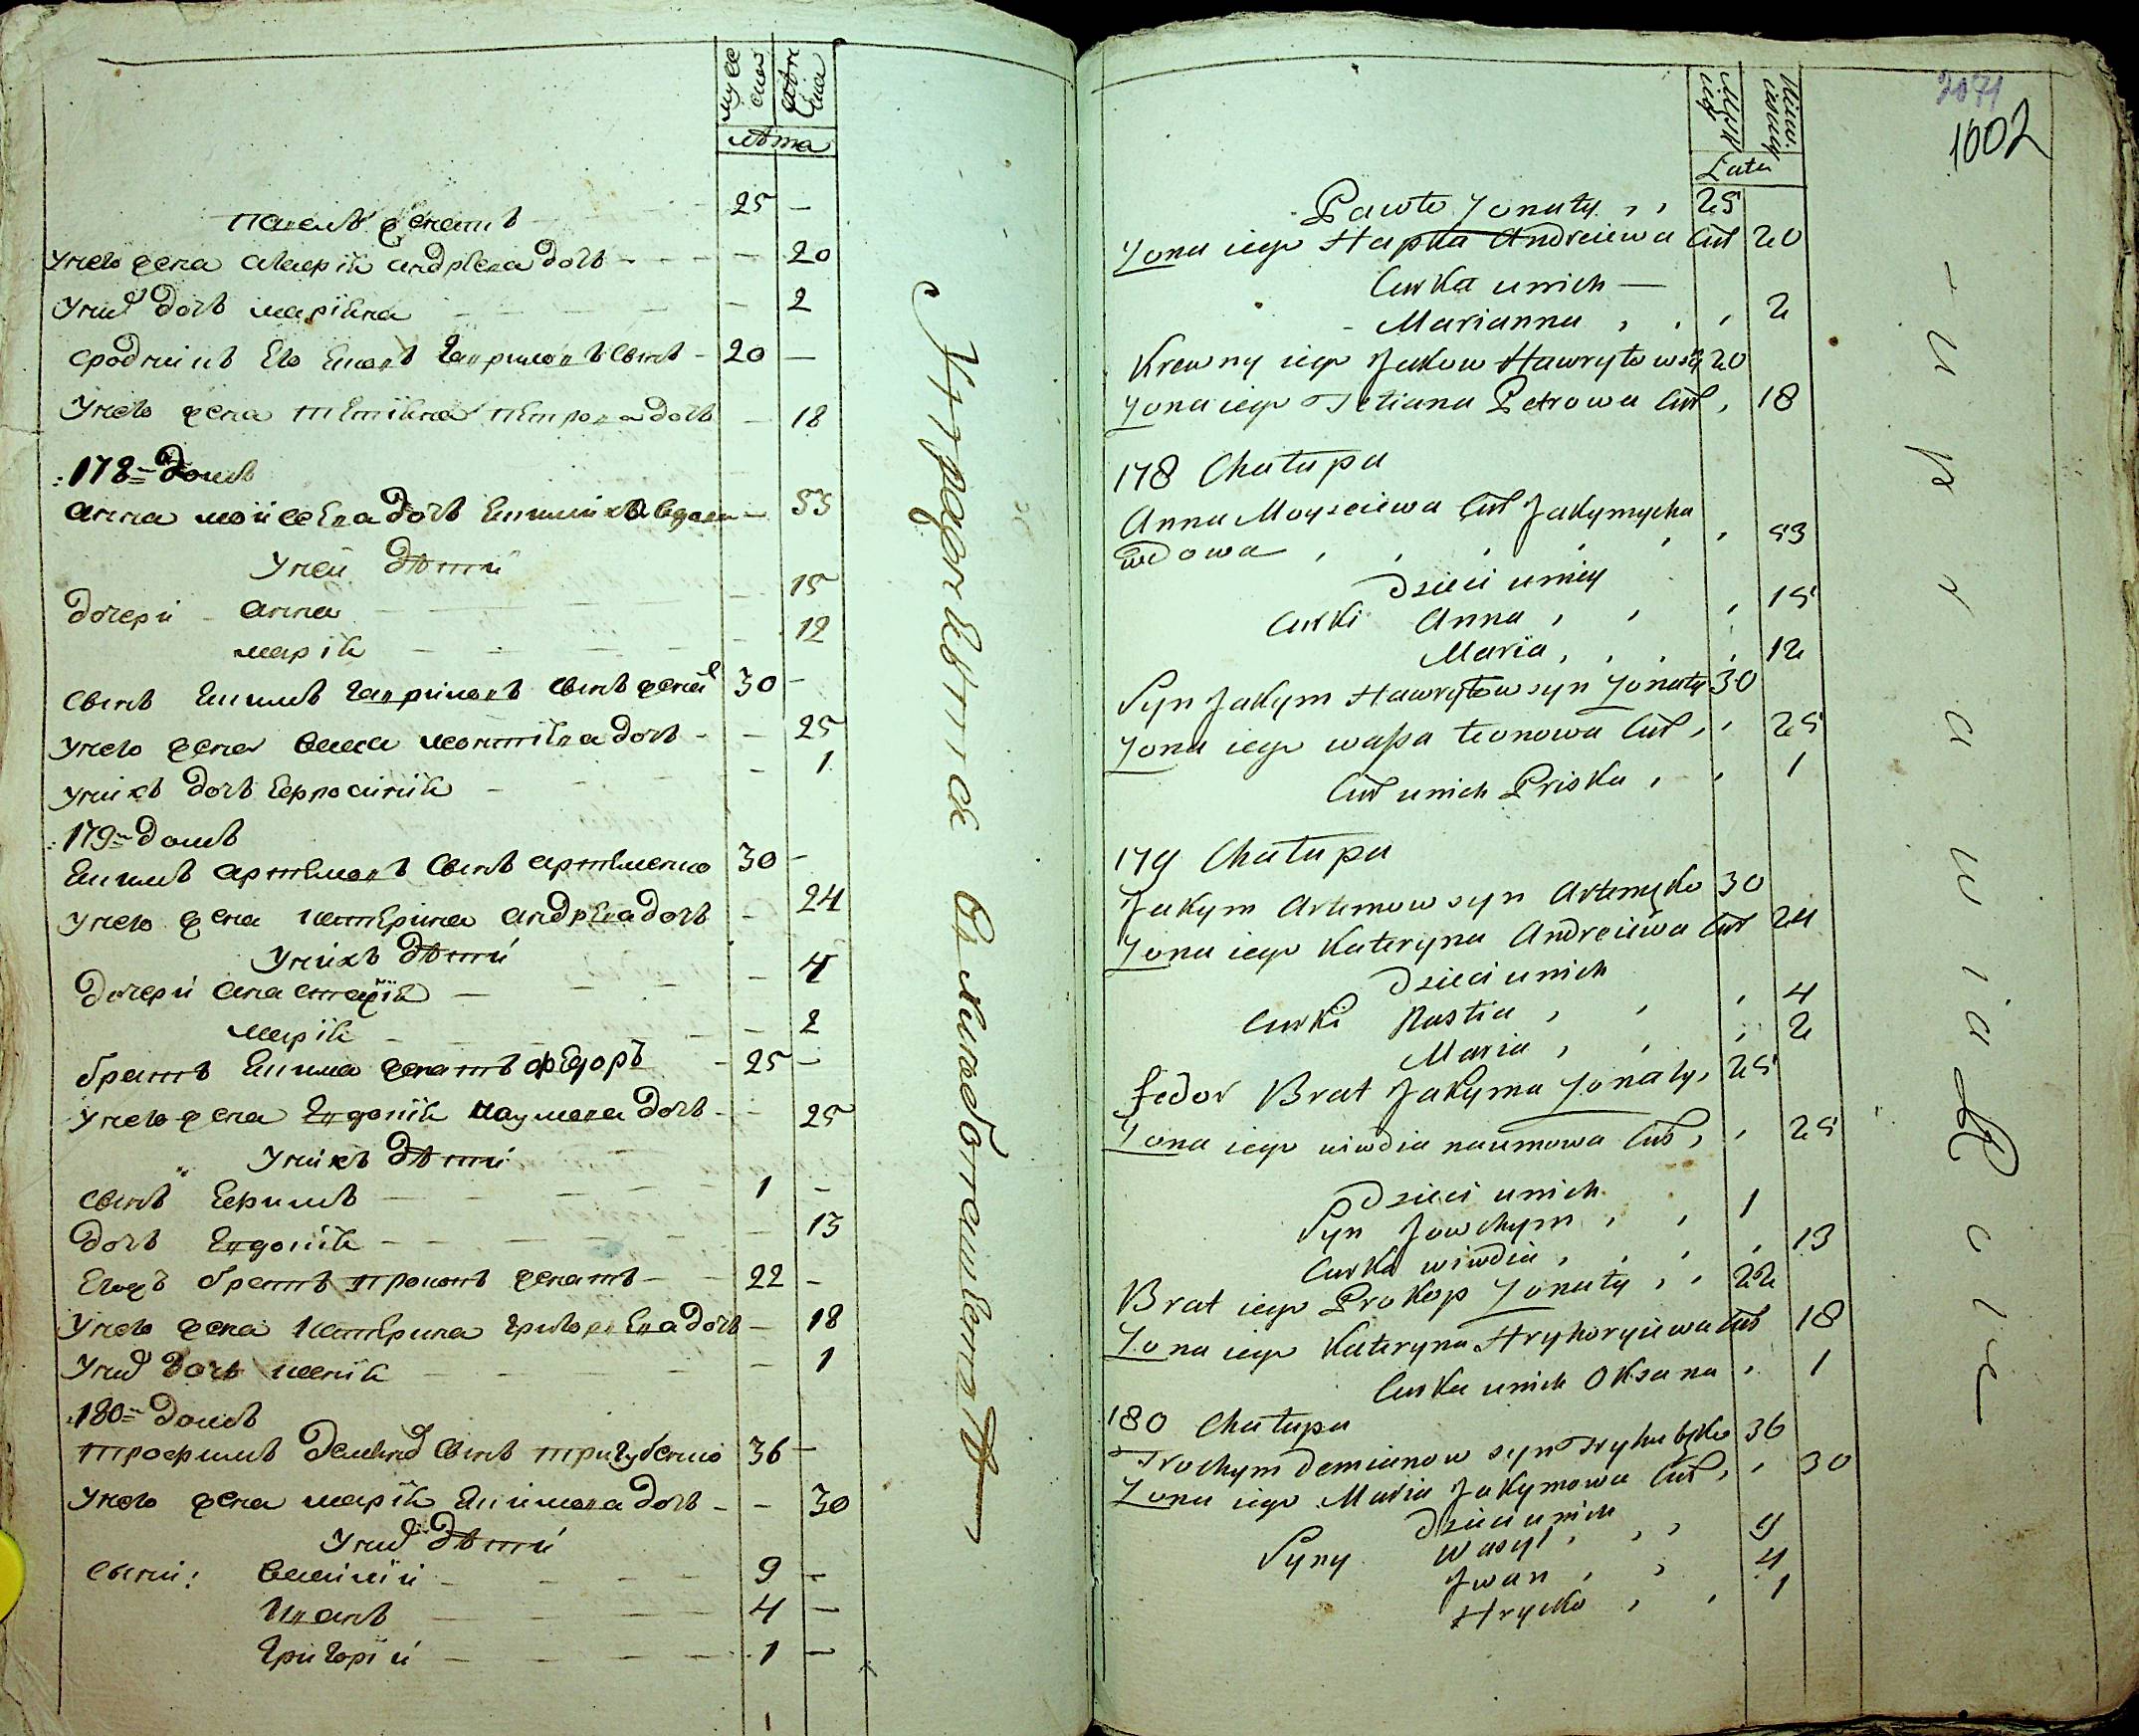 мужеска
женска
лѣта
Павелъ женатъ 25 —
У него жена Марія андрѣева дочь — 20
У них дочь маріяна — 2
сродникъ Его Яковъ Гавриловъ сынъ 20 —
У него жена тетіяна петрова дочь — 18
178 = домъ
анна моисеева дочь вдова — 53
У ней дѣти
дочери анна — 15
марія — 12
сынъ Екимъ Гавриловъ сынъ женат 30 —
У него жена васса дочь — 25
У нихъ дочь Евросинія — 1
179 = домъ
Екимъ артемовъ сынъ артеменко 30 —
У него жена катерина андрѣева дочь — 24
У нихъ дѣти
дочери анастасія — 4
марія — 2
братъ Екима женатъ федоръ 25 —
У него жена Евдокія наумова дочь — 25
У нихъ дѣти
сынъ Ефимъ 1 —
дочь Евдокія — 13
Егожъ братъ прокопъ женатъ 22 —
У него жена катерина григорьева дочь — 18
У них дочь ксенія — 1
180 = домъ
трофимъ демьянов сынъ тригубенко 36 —
У него жена марія Екимова дочь — 30
У них дѣти
сыни: василій 9 —
Иванъ 4 —
Григорій 1 —
1
2071
1002
Lata
Pawło Żonaty 25
Żona iego Hapka Andreiewa Cur 20
Curka unich —
Marianna 2
Krewny iego Jakow Hawryłow syn 20
Żona iego Tetiana Petrowa Cur 18
178 Chałupa
Anna Moyseiewa Cur Jakymycha
wdowa 53
Dzieci uniey
Curki Anna 15
Maria 12
Syn Jakym Hawryłow syn Żonaty 30
Żona iego Wassa Leonowa Cur 25
Cur unich Priska 1
179 Chałupa
Jakym Artemow syn Artemenko 30
Żona iego Kateryna Andreiewa Cur 24
Dzieci unich
Curki Nastia 4
Maria 2
Fedor Brat Jakyma Żonaty 25
Żona iego wiwdia naumowa Cur 25
Dzieci unich
Syn Jowchym 1
Curka wiwdia 13
Brat iego Prokop Żonaty 22
Żona iego Kateryna Hryhoryiewa Cur 18
Curka unich Oksana 1
180 Chałupa
Trochym Demianow syn Tryhubenko 36
Żona iego Maria Jakymowa Cur 30
Dzieci unich
Syny Wasyl 9
Jwan 4
Hrycko 1